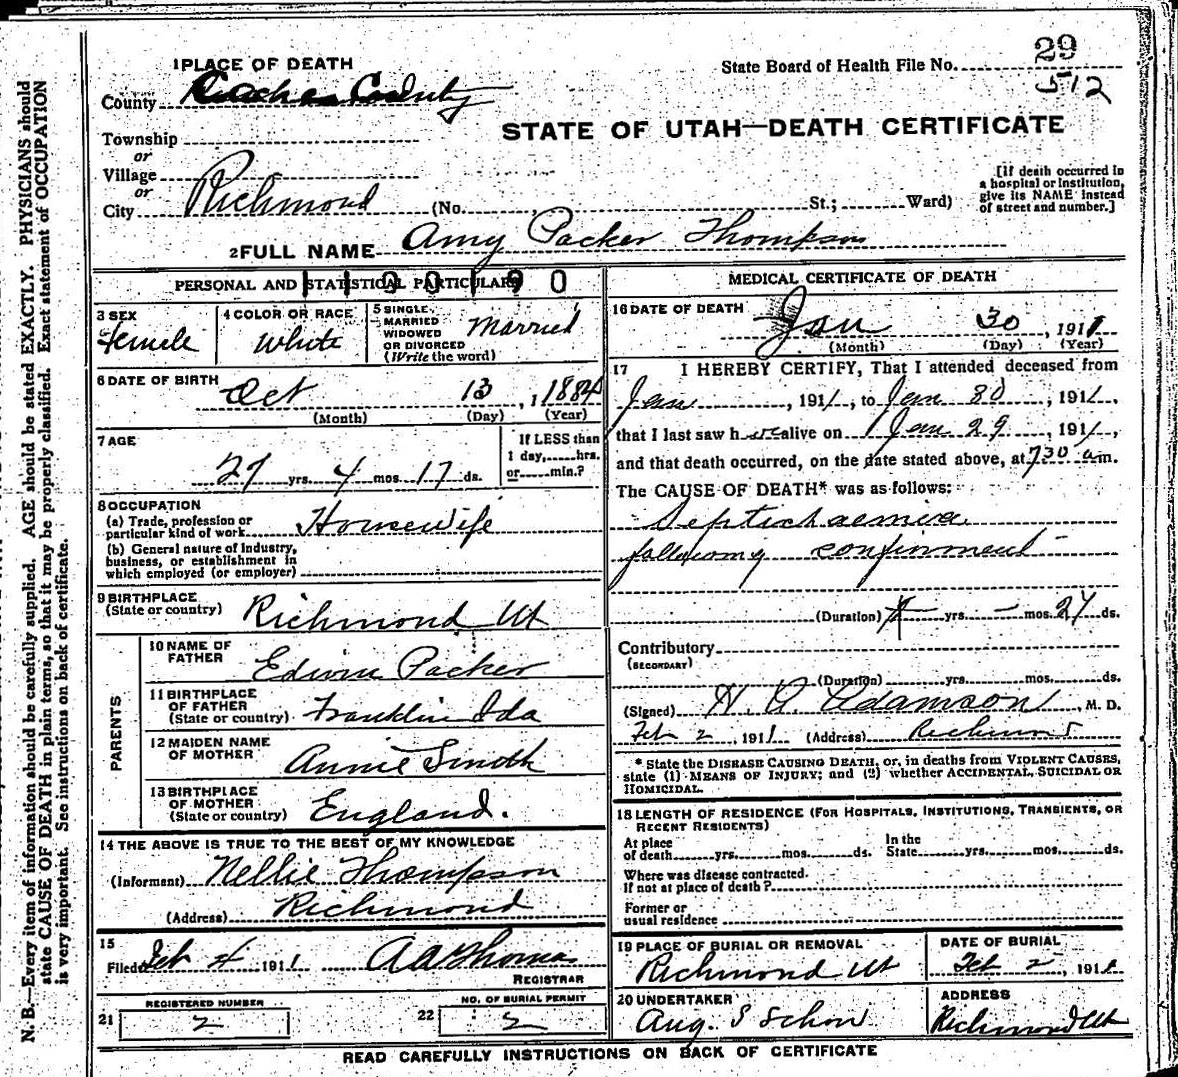 29
1 PLACE OF DEATH
State Board of Health File No.
512
County Cache County
STATE OF UTAH—DEATH CERTIFICATE
Township
or
Village
or
City Richmond (No. St.; Ward)
[If death occurred in
a hospital or institution,
give its NAME instead
of street and number.]
2 FULL NAME Amy Packer Thompson
PERSONAL AND STATISTICAL PARTICULARS
1 1 0 0 1 9 0
3 SEX
Female
4 COLOR OR RACE
White
5 SINGLE,
MARRIED
WIDOWED
OR DIVORCED
(Write the word)
Married
6 DATE OF BIRTH
Oct 13, 1884
(Month) (Day) (Year)
7 AGE
27 yrs. 4 mos. 17 ds.
If LESS than
1 day, hrs.
or min.?
8 OCCUPATION
(a) Trade, profession or
particular kind of work Housewife
(b) General nature of industry,
business, or establishment in
which employed (or employer)
9 BIRTHPLACE
(State or country) Richmond Ut
PARENTS
10 NAME OF
FATHER Edwin Packer
11 BIRTHPLACE
OF FATHER
(State or country) Franklin Ida
12 MAIDEN NAME
OF MOTHER Annie Smith
13 BIRTHPLACE
OF MOTHER
(State or country) England.
14 THE ABOVE IS TRUE TO THE BEST OF MY KNOWLEDGE
(Informent) Nellie Thompson
(Address) Richmond
15
Filed Feb 4 1911 AA Thomas
REGISTRAR
REGISTERED NUMBER
21 2
NO. OF BURIAL PERMIT
22 2
MEDICAL CERTIFICATE OF DEATH
16 DATE OF DEATH
Jan 30, 1911
(Month) (Day) (Year)
17 I HEREBY CERTIFY, That I attended deceased from
Jan , 1911, to Jan 30, 1911,
that I last saw h alive on Jan 29, 1911,
and that death occurred, on the date stated above, at 730 am.
The CAUSE OF DEATH* was as follows:
Septichaemia
following confinment
(Duration) yrs. — mos. 27 ds.
Contributory
(SECONDARY)
(Duration) yrs. mos. ds.
(Signed) Adamson, M. D.
Feb 2, 1911 (Address) Richmond
* State the DISEASE CAUSING DEATH, or, in deaths from VIOLENT CAUSES,
state (1) MEANS OF INJURY; and (2) whether ACCIDENTAL, SUICIDAL OR
HOMICIDAL.
18 LENGTH OF RESIDENCE (FOR HOSPITALS, INSTITUTIONS, TRANSIENTS, OR
RECENT RESIDENTS)
At place
of death yrs. mos. ds.
In the
State yrs. mos. ds.
Where was disease contracted.
If not at place of death?
Former or
usual residence
19 PLACE OF BURIAL OR REMOVAL
Richmond Ut
DATE OF BURIAL
Feb 2, 1911
20 UNDERTAKER
Aug. S Schow
ADDRESS
Richmond Ut
READ CAREFULLY INSTRUCTIONS ON BACK OF CERTIFICATE
N. B.—Every item of information should be carefully supplied. AGE should be stated EXACTLY. PHYSICIANS should
state CAUSE OF DEATH in plain terms, so that it may be properly classified. Exact statement of OCCUPATION
is very important. See instructions on back of certificate.